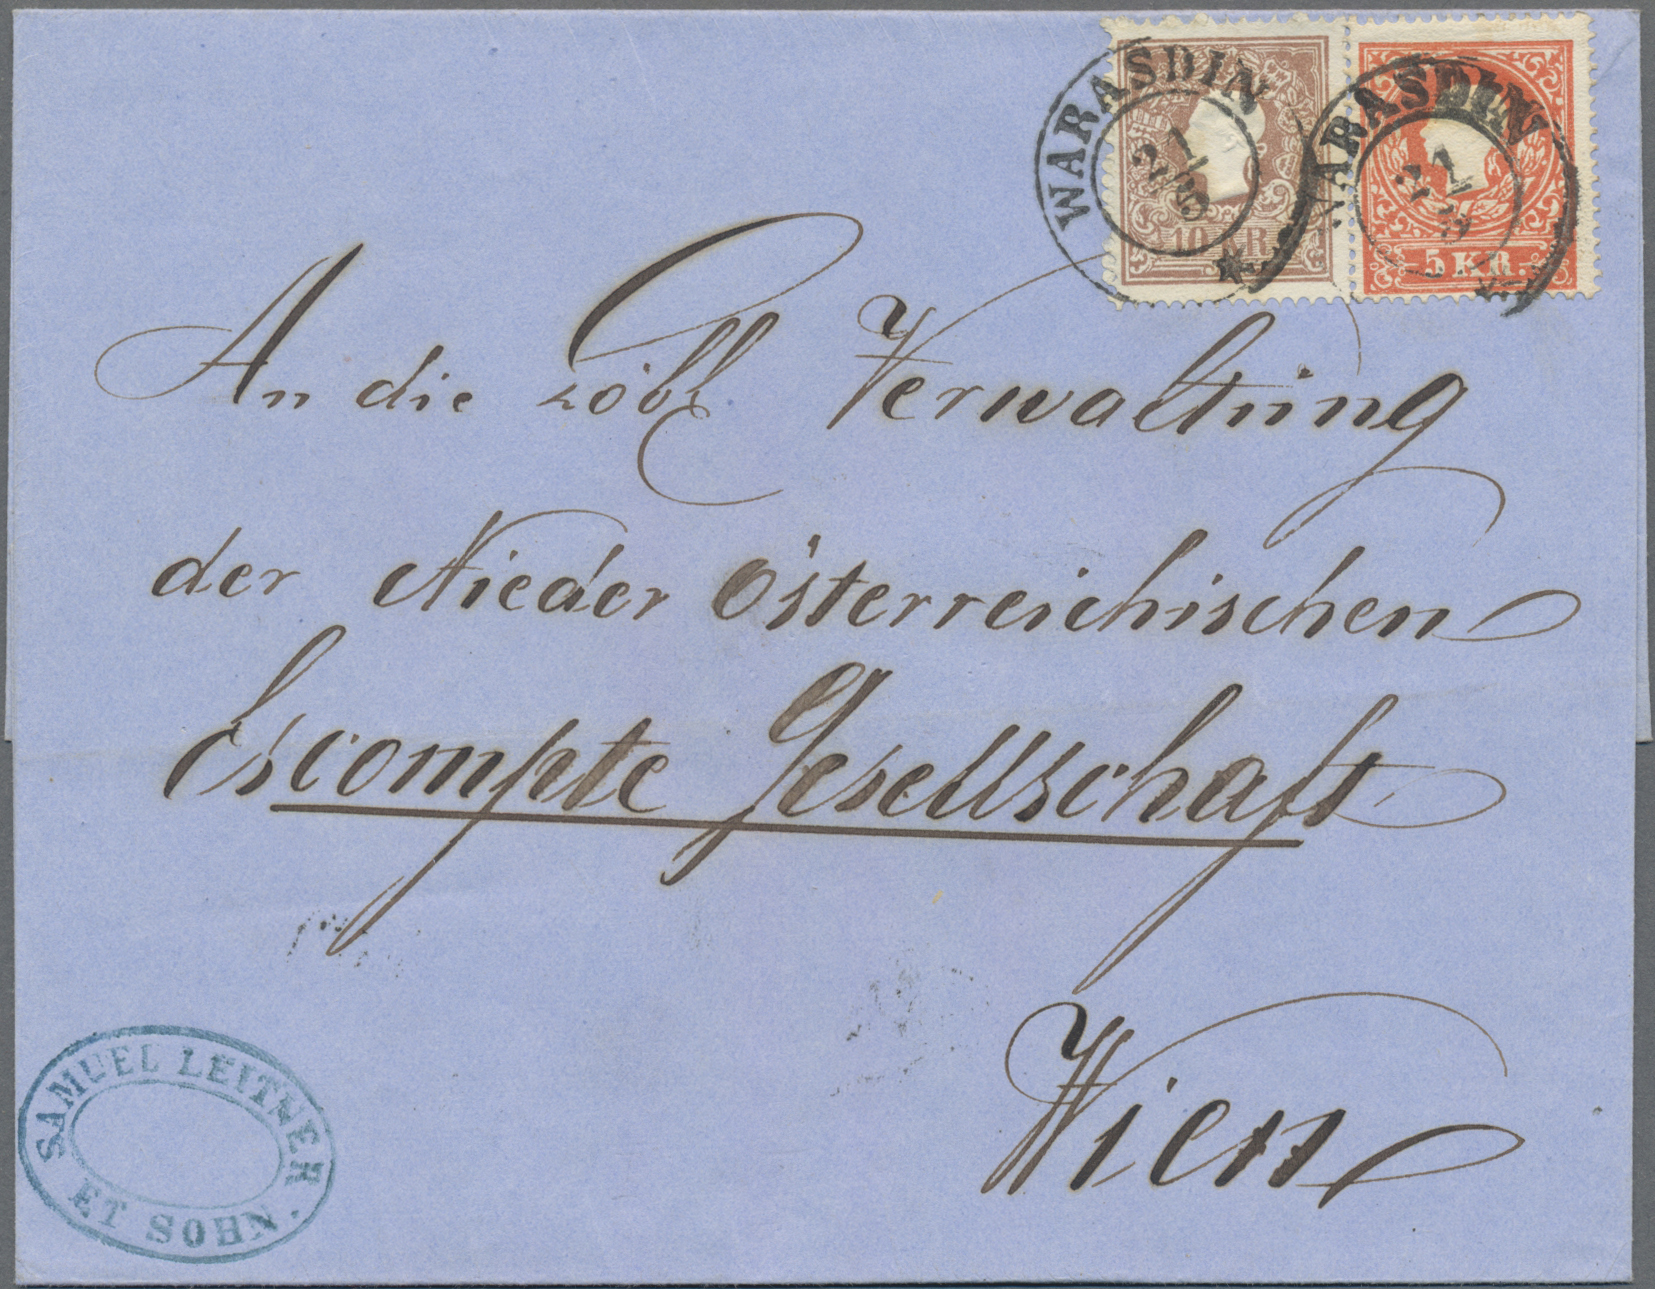 WARASDIN
21
3
WARASDIN
21
3
10 KR.
5 KR.
An die Löbl Verwaltung
der Nieder österreichischen
Escompte Gesellschaft
Wien
SAMUEL LEITNER
ET SOHN.